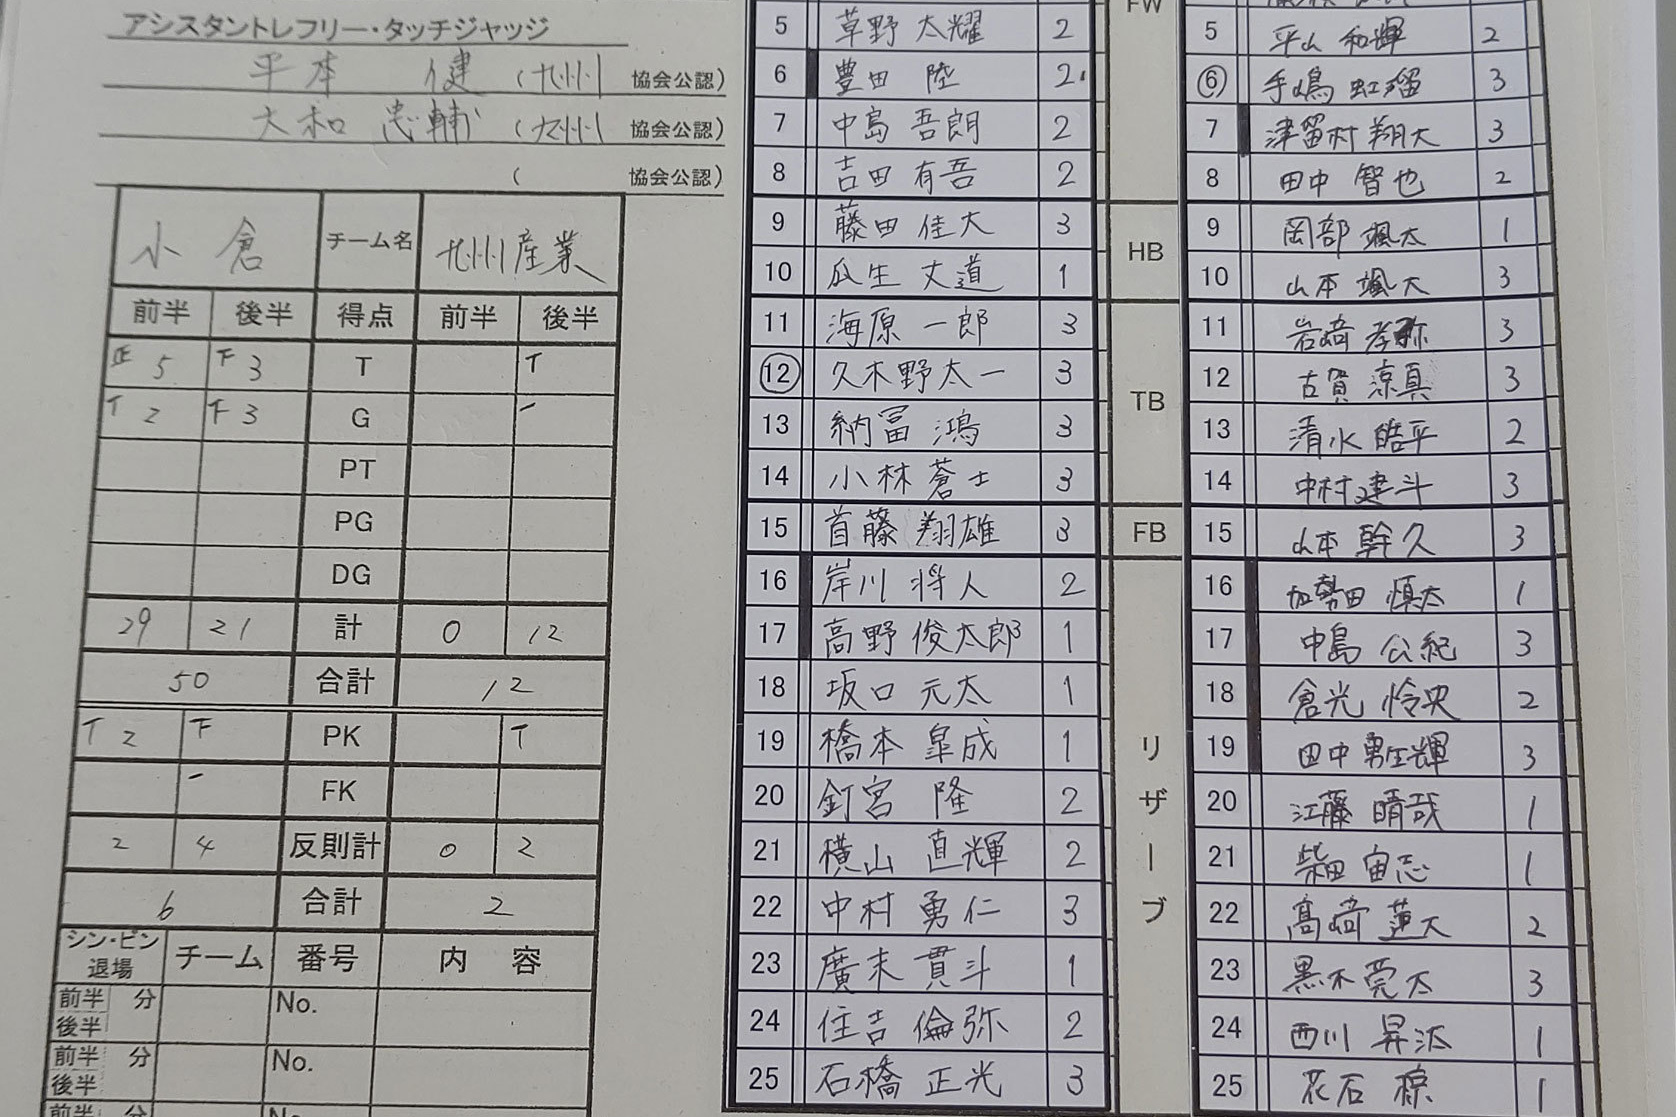 アシスタントレフリー・タッチジャッジ
平本 健 (九州 協会公認)
大和 忠輔 (九州 協会公認)
( 協会公認)
小倉 チーム名 九州産業
前半 後半 得点 前半 後半
正 5 下 3 T T
T 2 下 3 G 一
PT
PG
DG
29 21 計 0 12
50 合計 12
T 2 下 PK T
一 FK
2 4 反則計 0 2
6 合計 2
シン・ビン 退場 チーム 番号 内容
前半 分 No.
後半
前半 分 No.
後半
前半 分 No.
5 草野 太耀 2
6 豊田 陸 2
7 中島 吾朗 2
8 吉田 有吾 2
9 藤田 佳大 3
10 瓜生 丈道 1
11 海原 一郎 3
12 久木野太一 3
13 納冨 鴻 3
14 小林 蒼士 3
15 首藤 翔雄 3
16 岸川 将人 2
17 高野 俊太郎 1
18 坂口 元太 1
19 橋本 皐成 1
20 釘宮 隆 2
21 横山 直輝 2
22 中村 勇仁 3
23 廣末 貫斗 1
24 住吉 倫弥 2
25 石橋 正光 3
FW
HB
TB
FB
リザーブ
5 平山 和輝 2
6 手嶋 虹瑠 3
7 津留村 翔大 3
8 田中 智也 2
9 岡部 颯太 1
10 山本 颯大 3
11 岩﨑 孝弥 3
12 古賀 涼真 3
13 清水 皓平 2
14 中村建斗 3
15 山本 幹久 3
16 加勢田 慎太 1
17 中島 公紀 3
18 倉光 怜央 2
19 田中 勇生輝 3
20 江藤 晴哉 1
21 柴田 宙志 1
22 髙﨑 蓮大 2
23 黒木 莞太 3
24 西川 昇汰 1
25 花石 椋 1